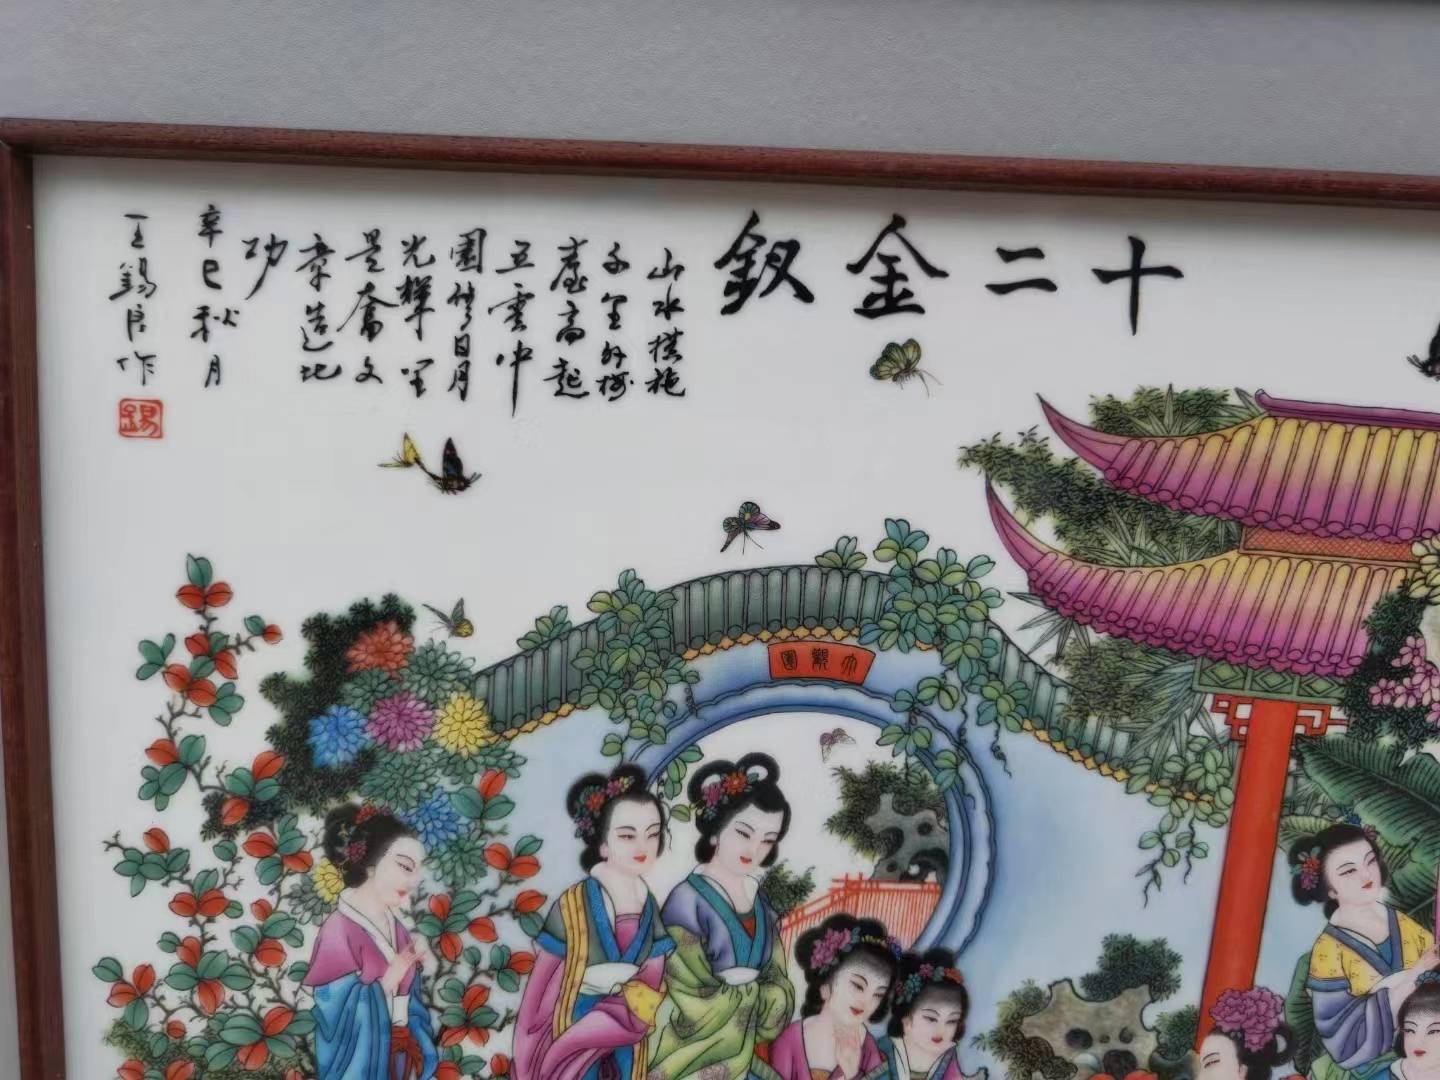 十二金釵
山水橫拖
千里外樓
臺高起
五雲中
園修日月
光輝里
景奪文
章造化
功
辛巳秋月
王錫良作
錫
大觀園